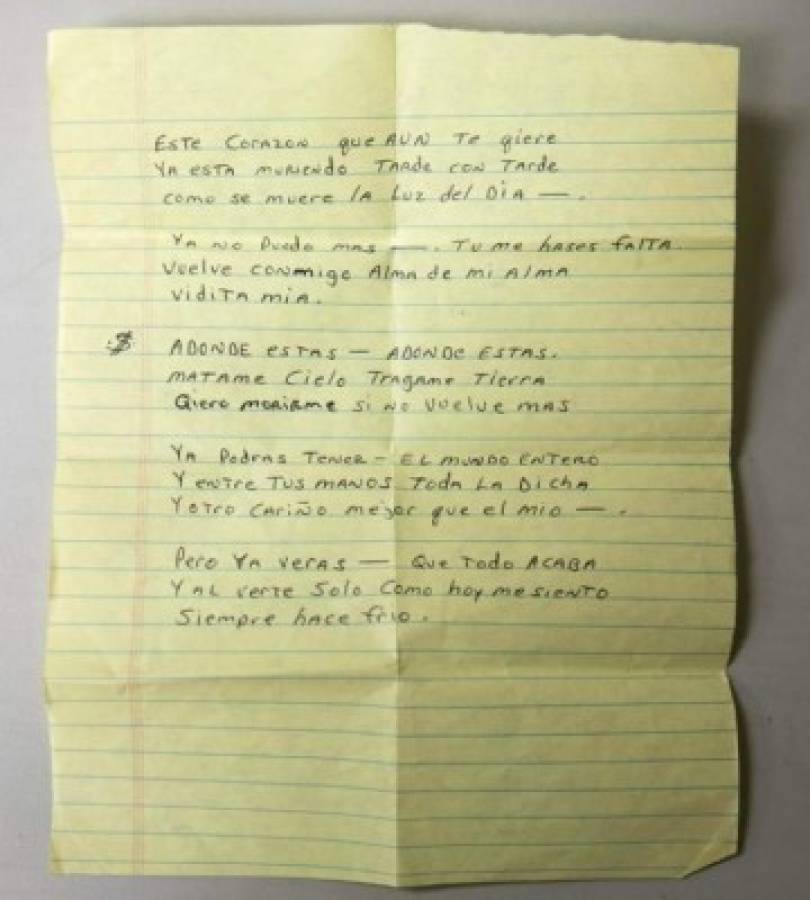 ESTE CORAZON que AUN Te qiere
YA ESTA MURIENDO TARDE CON TARDE
como se muere LA LUZ del DiA — .
YA NO Puedo mas — . Tu me hases fALTA.
Vuelve conmigo Alma de mi Alma
vidiTA miA.
ADONDE esTAS — ADONDE ESTAS.
MATAme Cielo Tragame Tierra
Qiero moriRme si no vuelve mas
YA Podras Tener - EL mundo ENTERO
Y entre TUS MANOS Toda LA DichA
Y OTRO CARIÑO mejor que el mio — .
Pero YA veras — Que Todo ACABA
Y AL verte Solo Como hoy me SIENTO
Siempre hace frio .